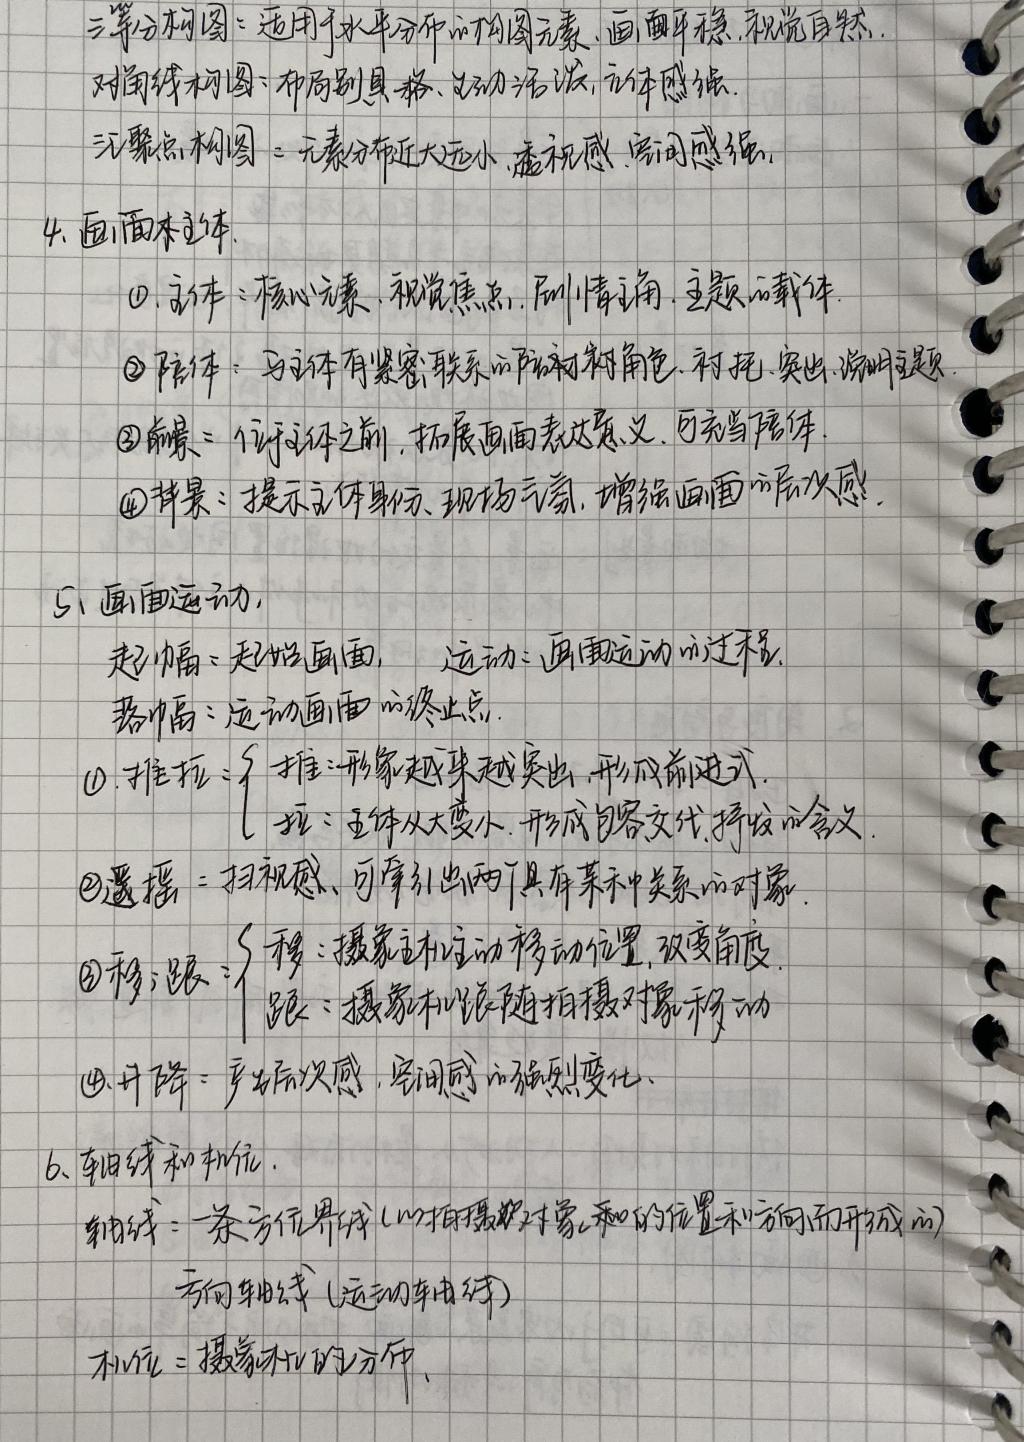 三等分构图：适用于水平分布的构图元素、画面平稳、视觉自然.
对角线构图：布局别具一格、生动活泼，立体感强.
汇聚点构图：元素分布近大远小、透视感、空间感强.
4、画面主体.
①、主体：核心元素、视觉焦点、剧情主角、主题的载体.
②陪体：与主体有紧密联系的陪衬角色、衬托、突出、说明主题.
③前景：位于主体之前，拓展画面表达意义、可充当陪体.
④背景：提示主体身份、现场气氛，增强画面的层次感.
5、画面运动，
起幅：起始画面， 运动：画面运动的过程.
落幅：运动画面的终止点.
①、推拉：{ 推：形象越来越突出，形成前进式.
拉：主体从大变小、形成包容交代、抒发的含义.
②摇：扫视感、可牵引出两个具有某种关系的对象.
③移；跟：{ 移：摄象主机主动移动位置，改变角度.
跟：摄象机跟随拍摄对象移动
④、升降：产生层次感、空间感的强烈变化、
6、轴线和机位.
轴线：一条方位界线（以拍摄对象的位置和方向而形成的）
方向轴线（运动轴线）
机位：摄象机的分布、